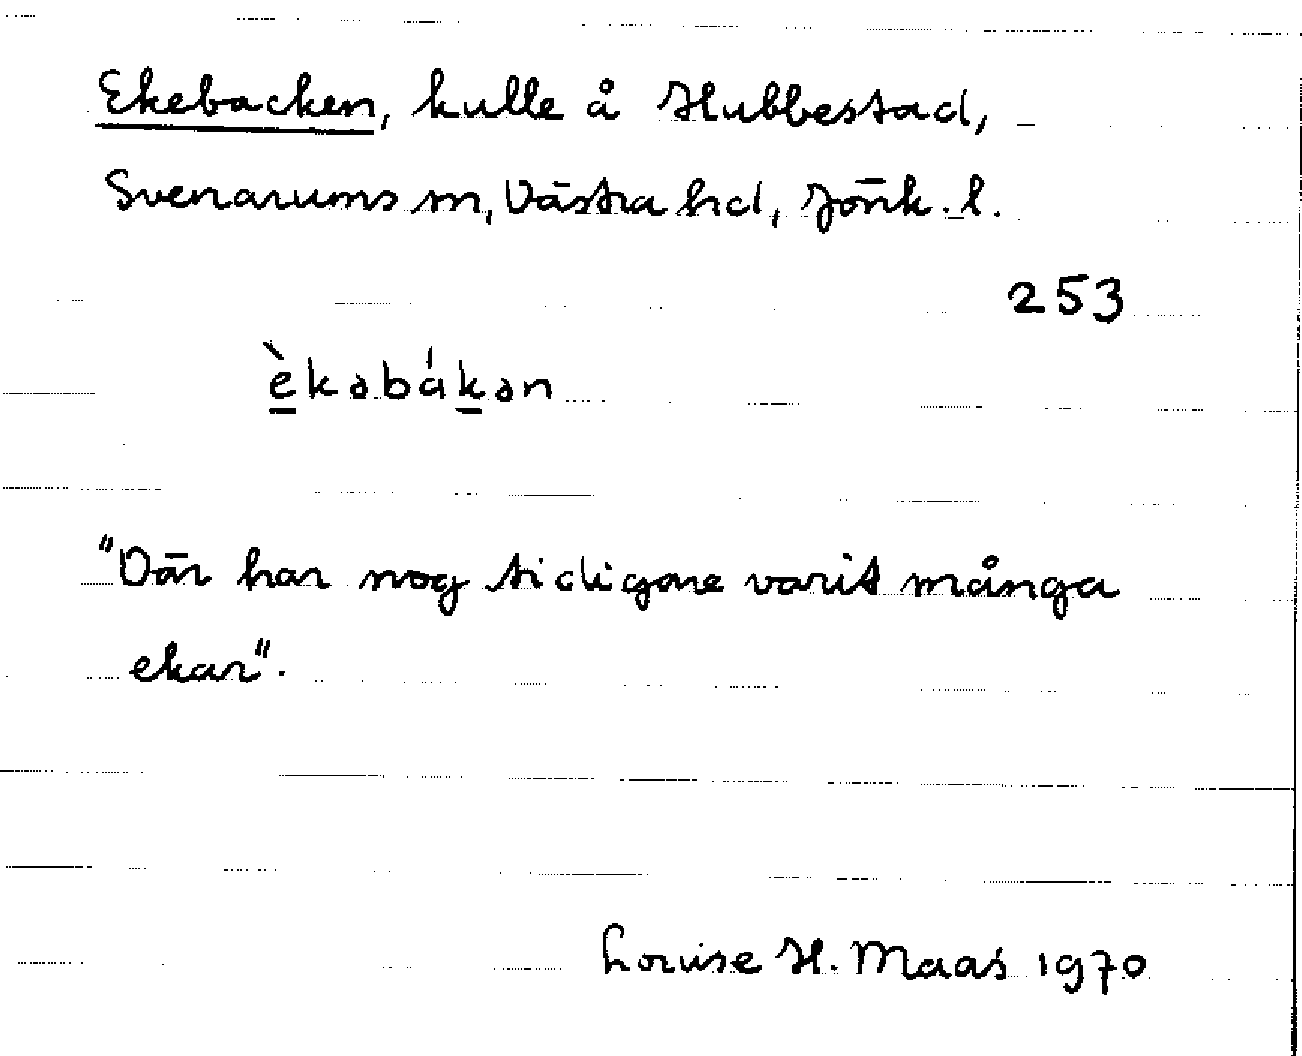 Ekebacken, kulle å Hubbestad,
Svenarums sn, Västra hd, Jönk. l.
253
èkəbákən
"Där har nog tidigare varit många
ekar".
Louise H. Maas 1970